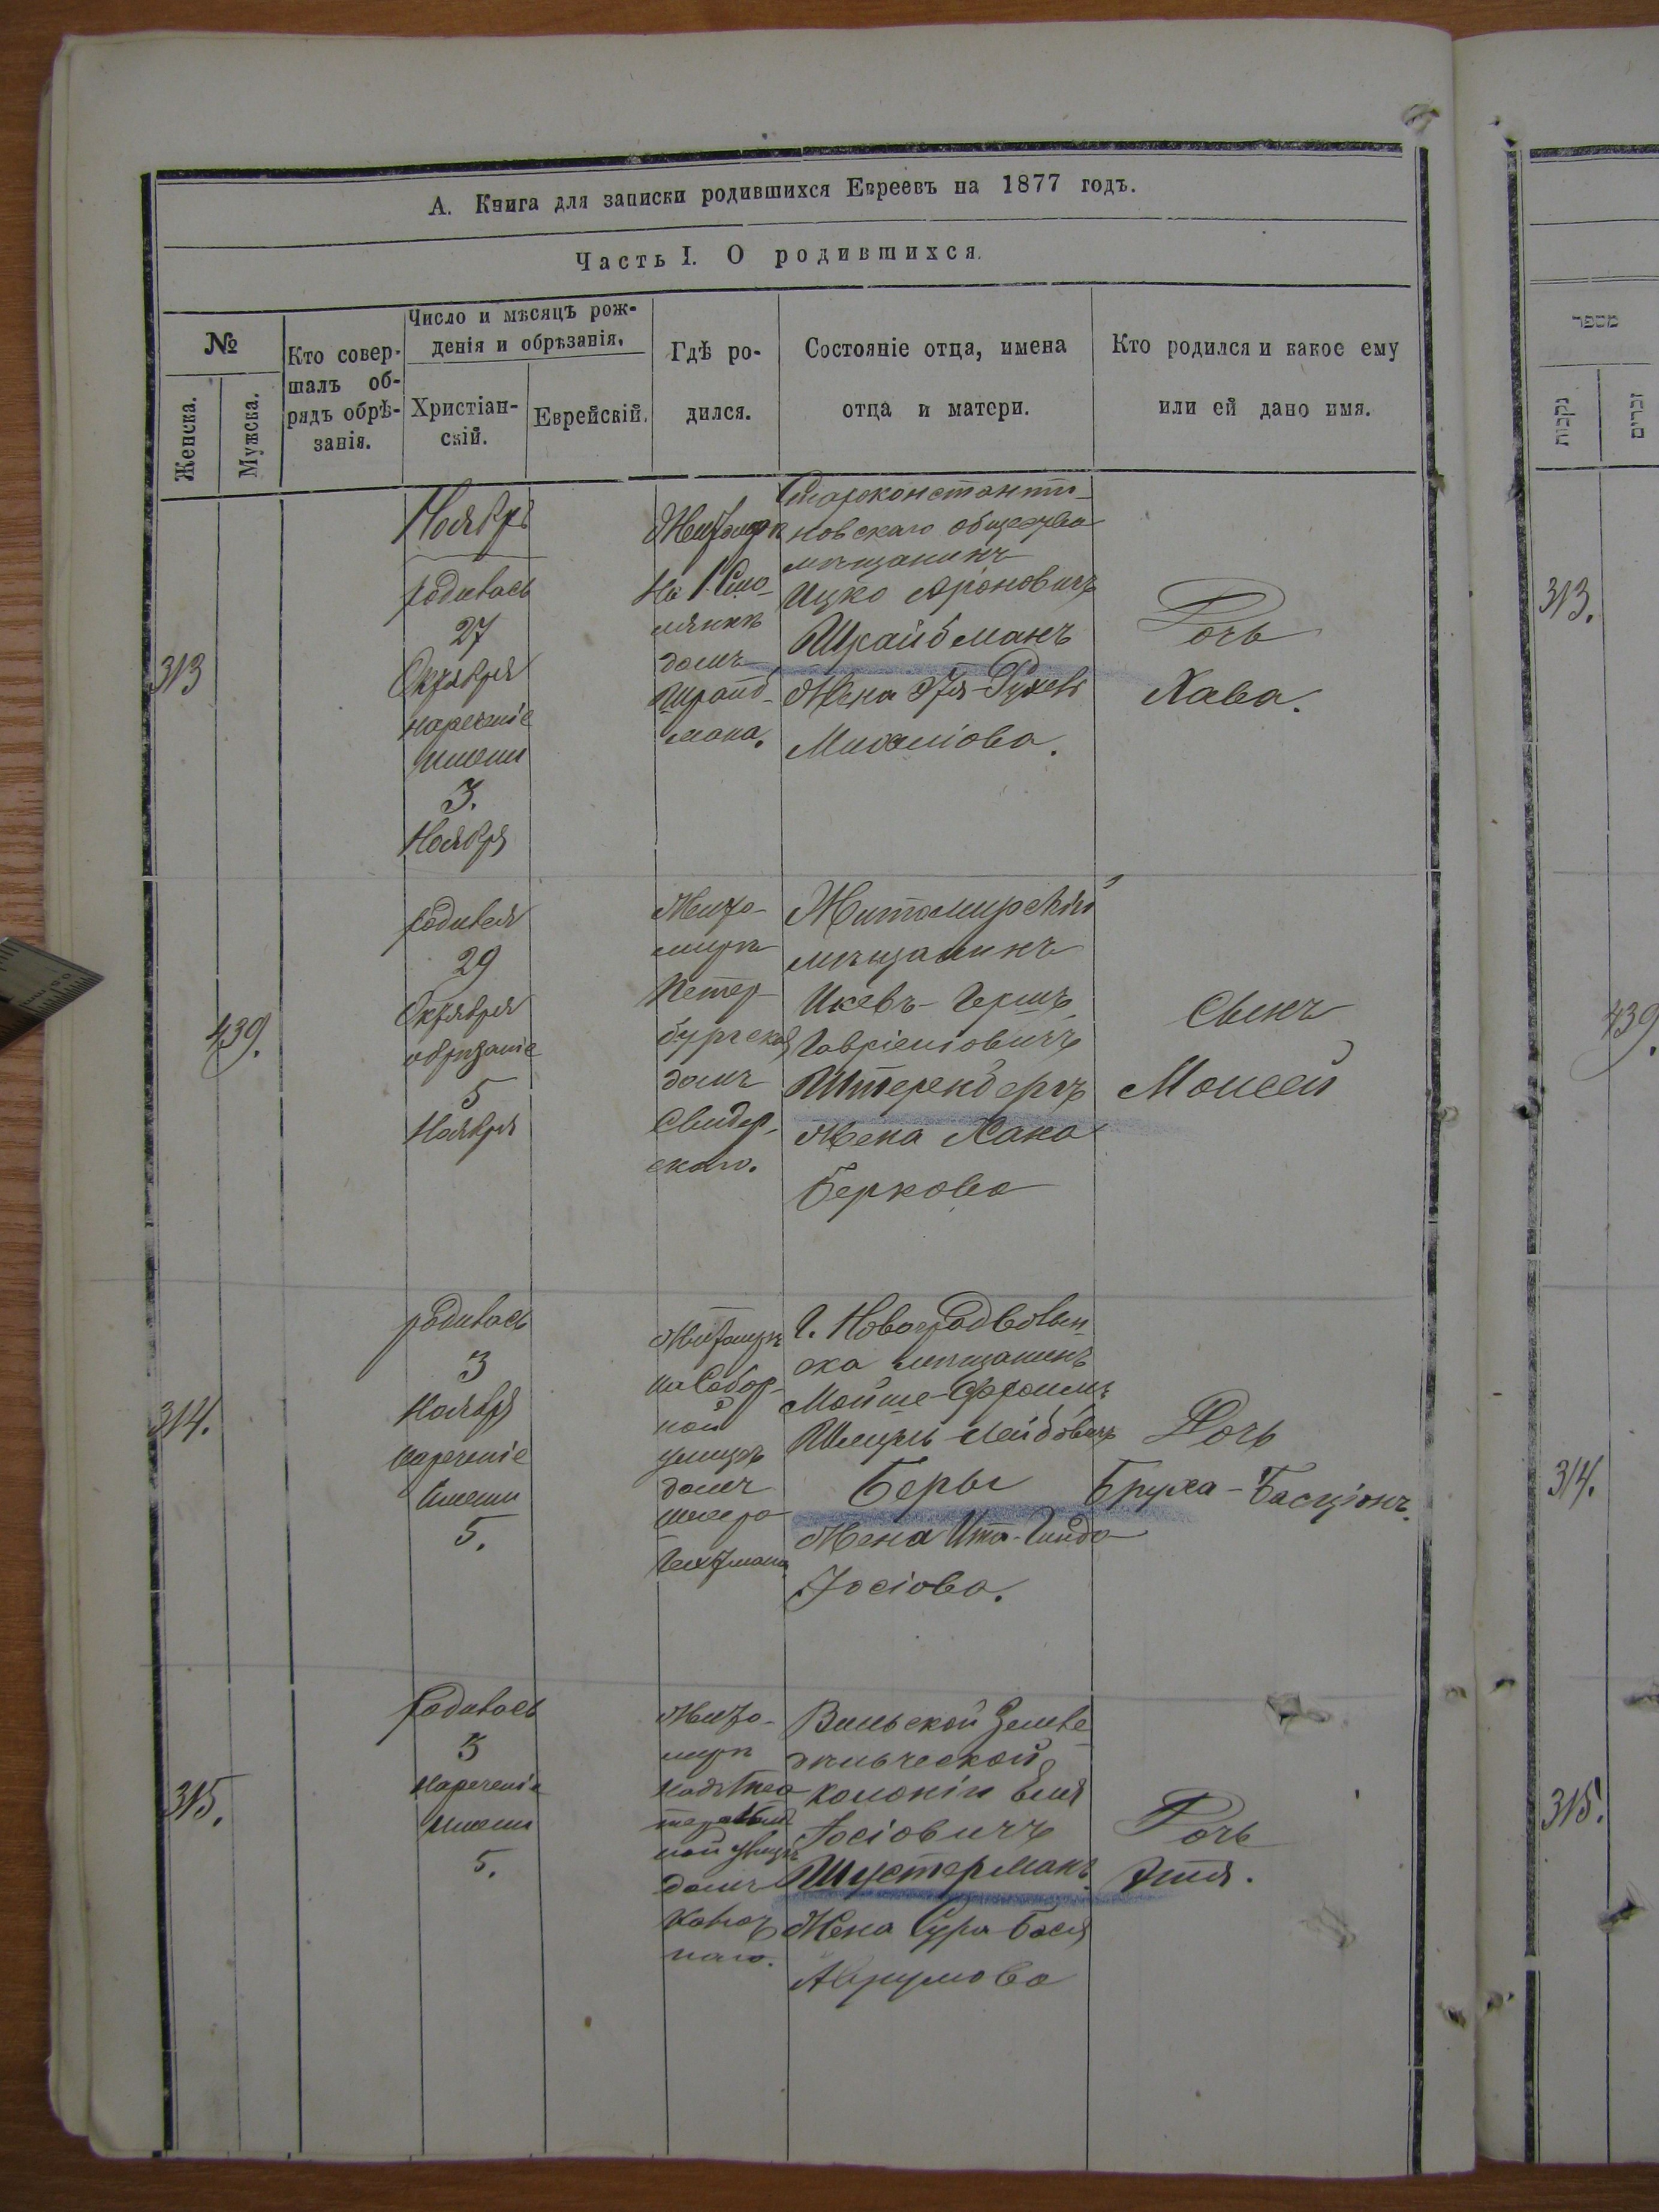 А. Книга для записки родившихся Евреевъ на 1877 годъ.
Часть I. О родившихся.
№
Женска.
Мужска.
Кто совер-
шалъ об-
рядъ обрѣ-
занія.
Число и мѣсяцъ рож-
денія и обрѣзанія.
Христіан-
скій.
Еврейскій.
Гдѣ ро-
дился.
Состояніе отца, имена
отца и матери.
Кто родился и какое ему
или ей дано имя.
313
Ноябрь
родилась
27
Октября
нареченіе
имени
3.
Ноября
Житомирѣ
домъ
Шрайб-
мана.
Староконстанти-
новскаго общества
мѣщанинъ
Ицко Ароновичъ
Шрайбманъ
Жена Этя-Рухель
Михелiова.
Дочь
Хава.
439.
родился
29
Октября
обрѣзаніе
5
Ноября
Жито-
мирѣ
Петер-
бургская
домъ
Свидер-
скаго.
Житомирскій
мѣщанинъ
Икевъ-Гершъ
Гавріеліовичъ
Штеренбергъ
Жена Хана
Беркова
Сынъ
Моисей
314.
родилась
3
Ноября
нареченіе
имени
5.
Житомирѣ
на Собор-
ной
улицѣ
домъ
Шмера
Гехтмана
Г. Новоградволын-
ска мѣщанинъ
Мойше-Эфроимъ
Шмуль Лейбовичъ
Беры
Жена Ита-Гинда
Іосіова.
Дочь
Бруха-Басціонъ.
315.
родилась
3
нареченіе
имени
5.
Жито-
мирѣ
ной улицѣ
домъ
наго.
Вильской Земле-
дѣльческой
колоніи Еля
Іосіовичъ
Шустерманъ
Жена Сура-Бася
Аврумова
Дочь
Этля.
מספר
נקבות
זכרים
313.
439.
314.
315.